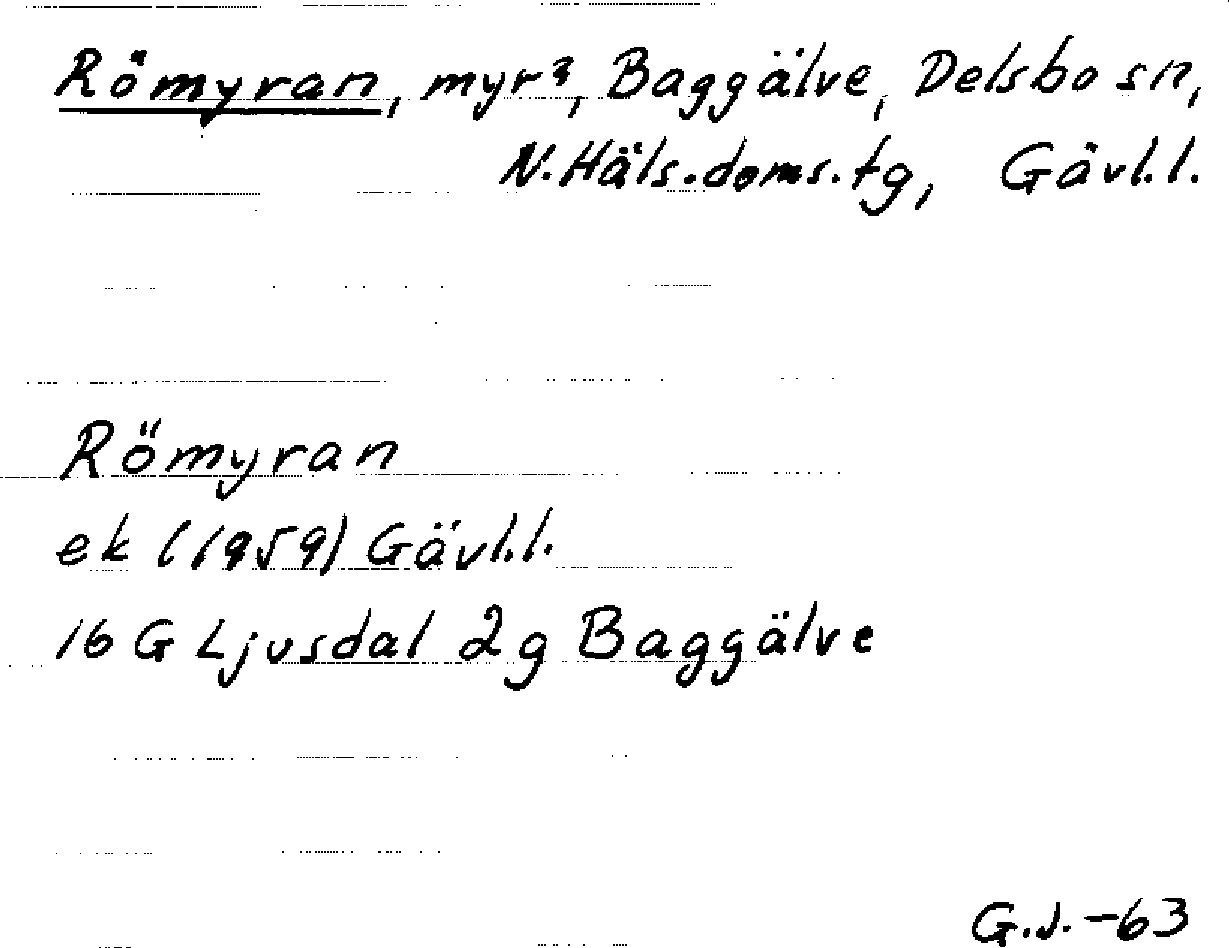 Römyran, myr?, Baggälve, Delsbo sn,
N.Häls.doms.tg, Gävl.l.
Römyran
ek (1959) Gävl.l.
16 G Ljusdal 2g Baggälve
G.J.-63